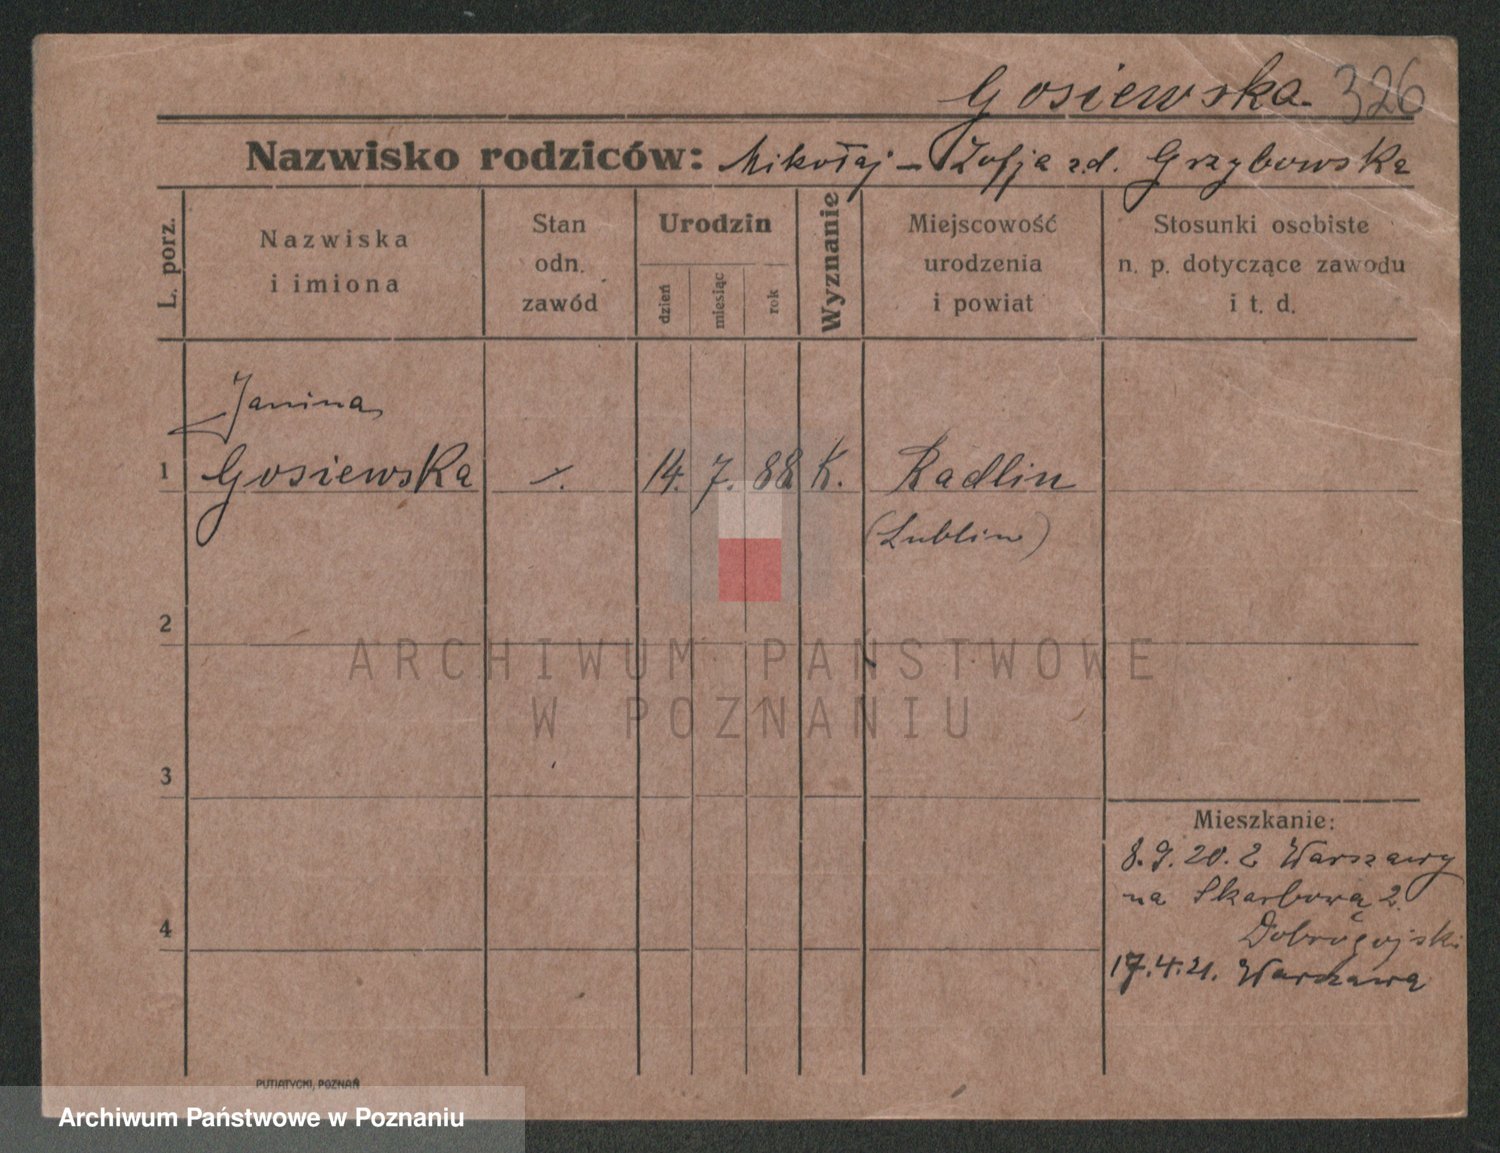 Gosiewska. 326
Nazwisko rodziców: Mikołaj – Zofja z.d. Grzybowska
L. porz.
Nazwiska
i imiona
Stan
odn.
zawód
Urodzin
dzień
miesiąc
rok
Wyznanie
Miejscowość
urodzenia
i powiat
Stosunki osobiste
n. p. dotyczące zawodu
i t. d.
Janina
1 Gosiewska 14. 7. 88 K. Radlin
(Lublin)
2
3
4
Mieszkanie:
8.9.20. z Warszawy
na Skarbową 2.
Dobrogojski
17.4.21. Warszawa
PUTIATYCKI, POZNAŃ
ARCHIWUM PAŃSTWOWE
W POZNANIU
Archiwum Państwowe w Poznaniu